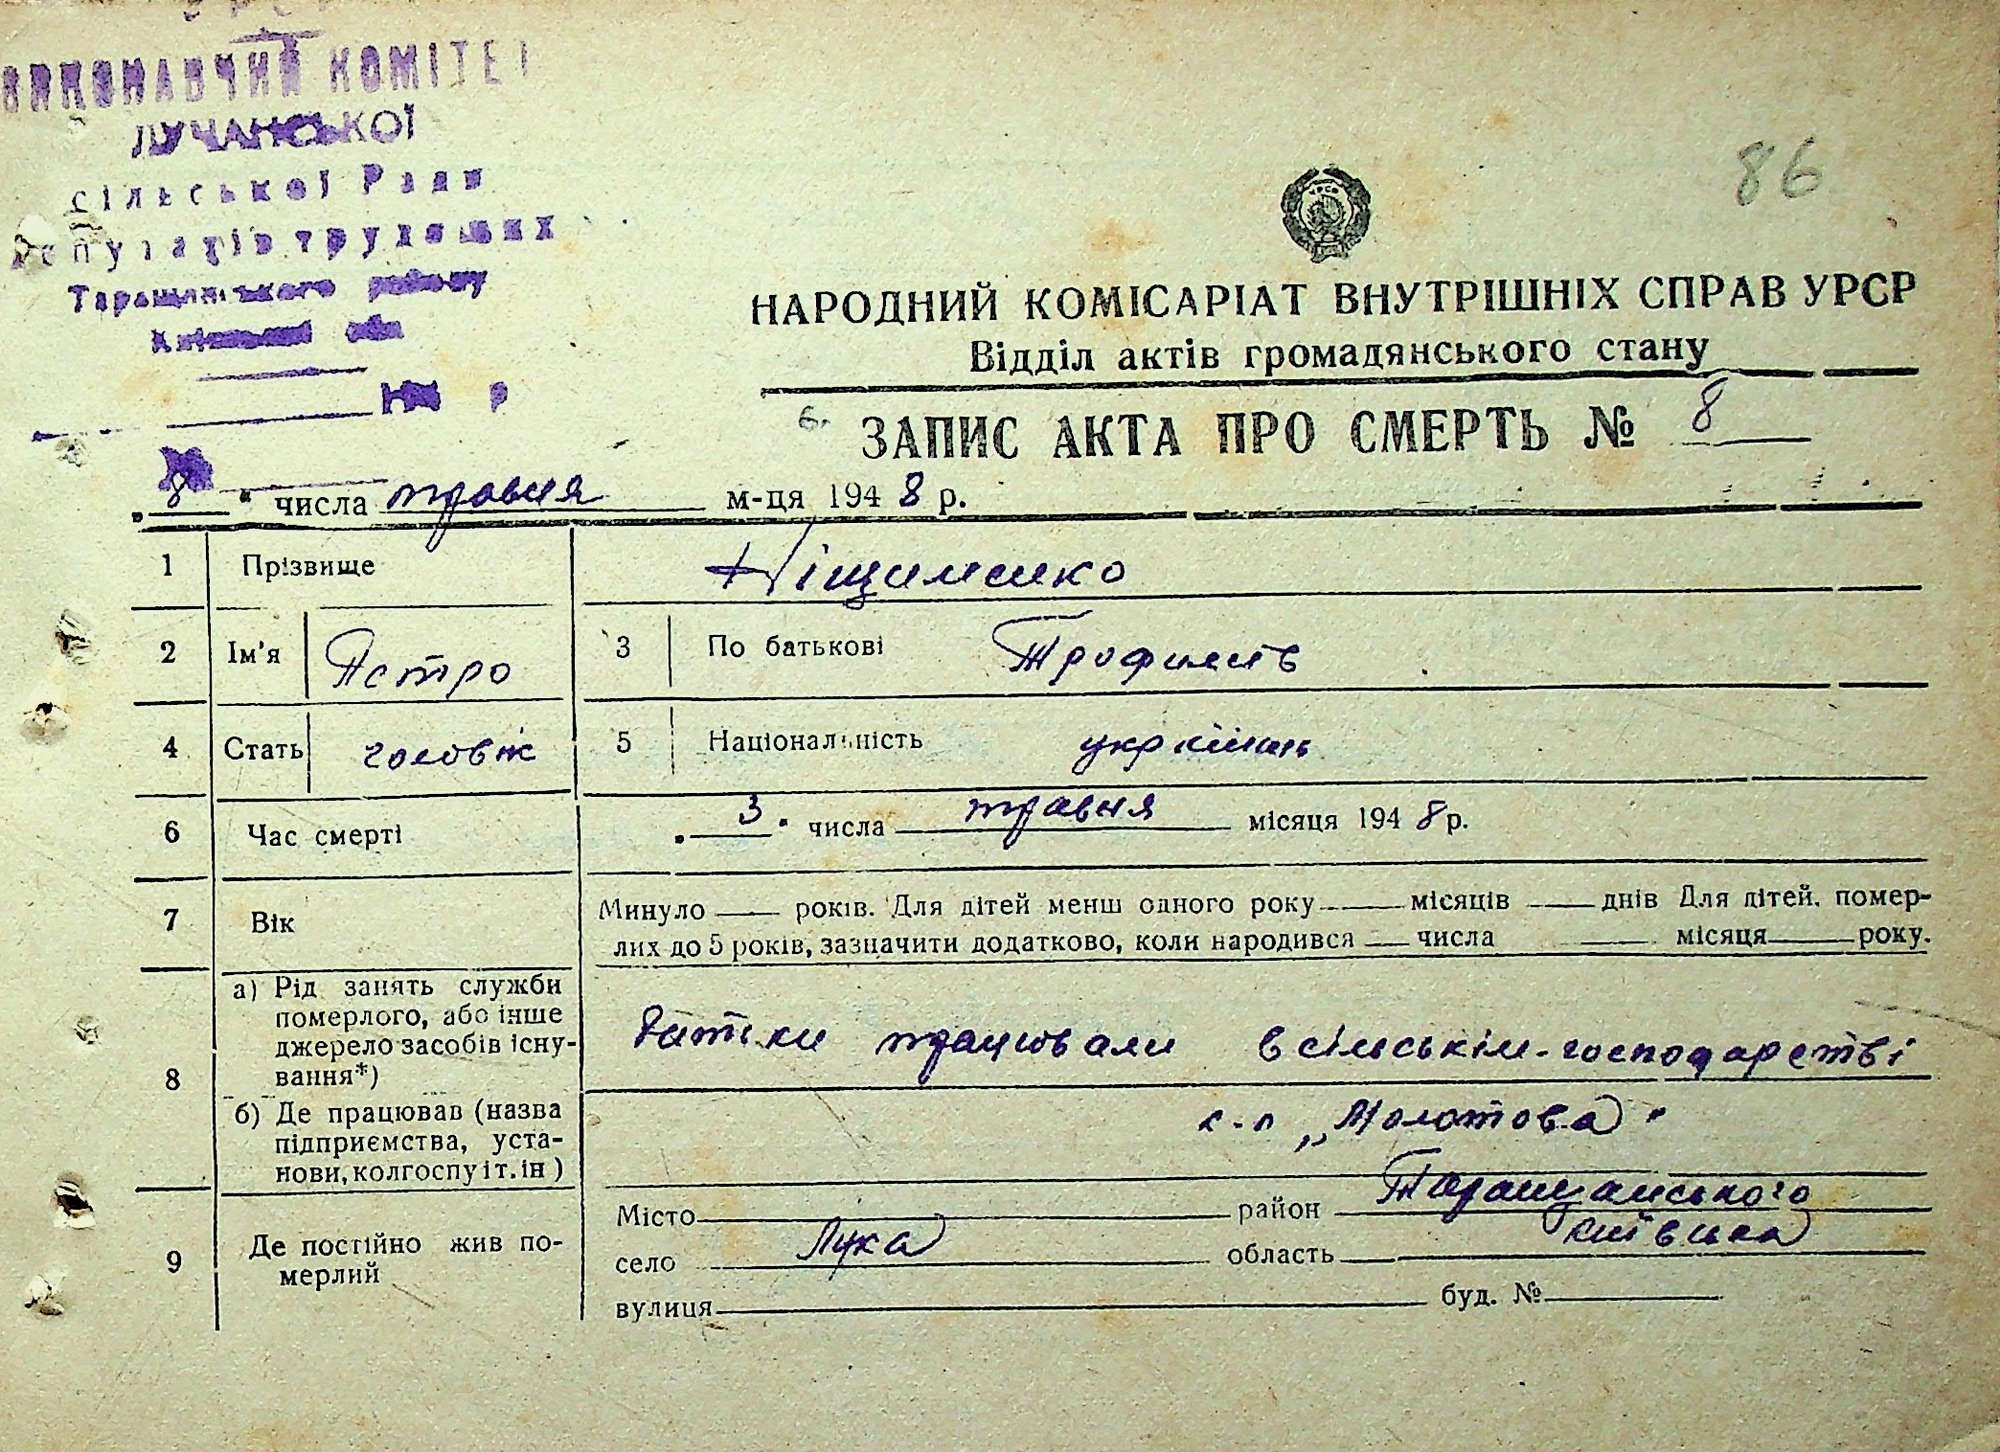 ВИКОНАВЧИЙ КОМІТЕТ
ЛУЧАНСЬКОЇ
сільської Ради
депутатів трудящих
Таращанського району
Київської обл.
р
86
УРСР
НАРОДНИЙ КОМІСАРІАТ ВНУТРІШНІХ СПРАВ УРСР
Відділ актів громадянського стану
ЗАПИС АКТА ПРО СМЕРТЬ № 8
„8" числа травня м-ця 1948 р.
1 Прізвище Ніщименко
2 Ім'я Петро 3 По батькові Трофимів
4 Стать чоловіч 5 Національність
6 Час смерті „3" числа травня місяця 1948 р.
7 Вік Минуло — років. Для дітей менш одного року — місяців — днів Для дітей, помер-
лих до 5 років, зазначити додатково, коли народився — числа — місяця — року.
8 а) Рід занять служби
померлого, або інше
джерело засобів існу-
вання*)
Батьки працювали в сільськім-господарстві
б) Де працював (назва
підприємства, уста-
нови, колгоспу і т. ін)
к-п „Молотова"
9 Де постійно жив по-
мерлий
Місто район Таращанського
село Лука область Київська
вулиця буд. №